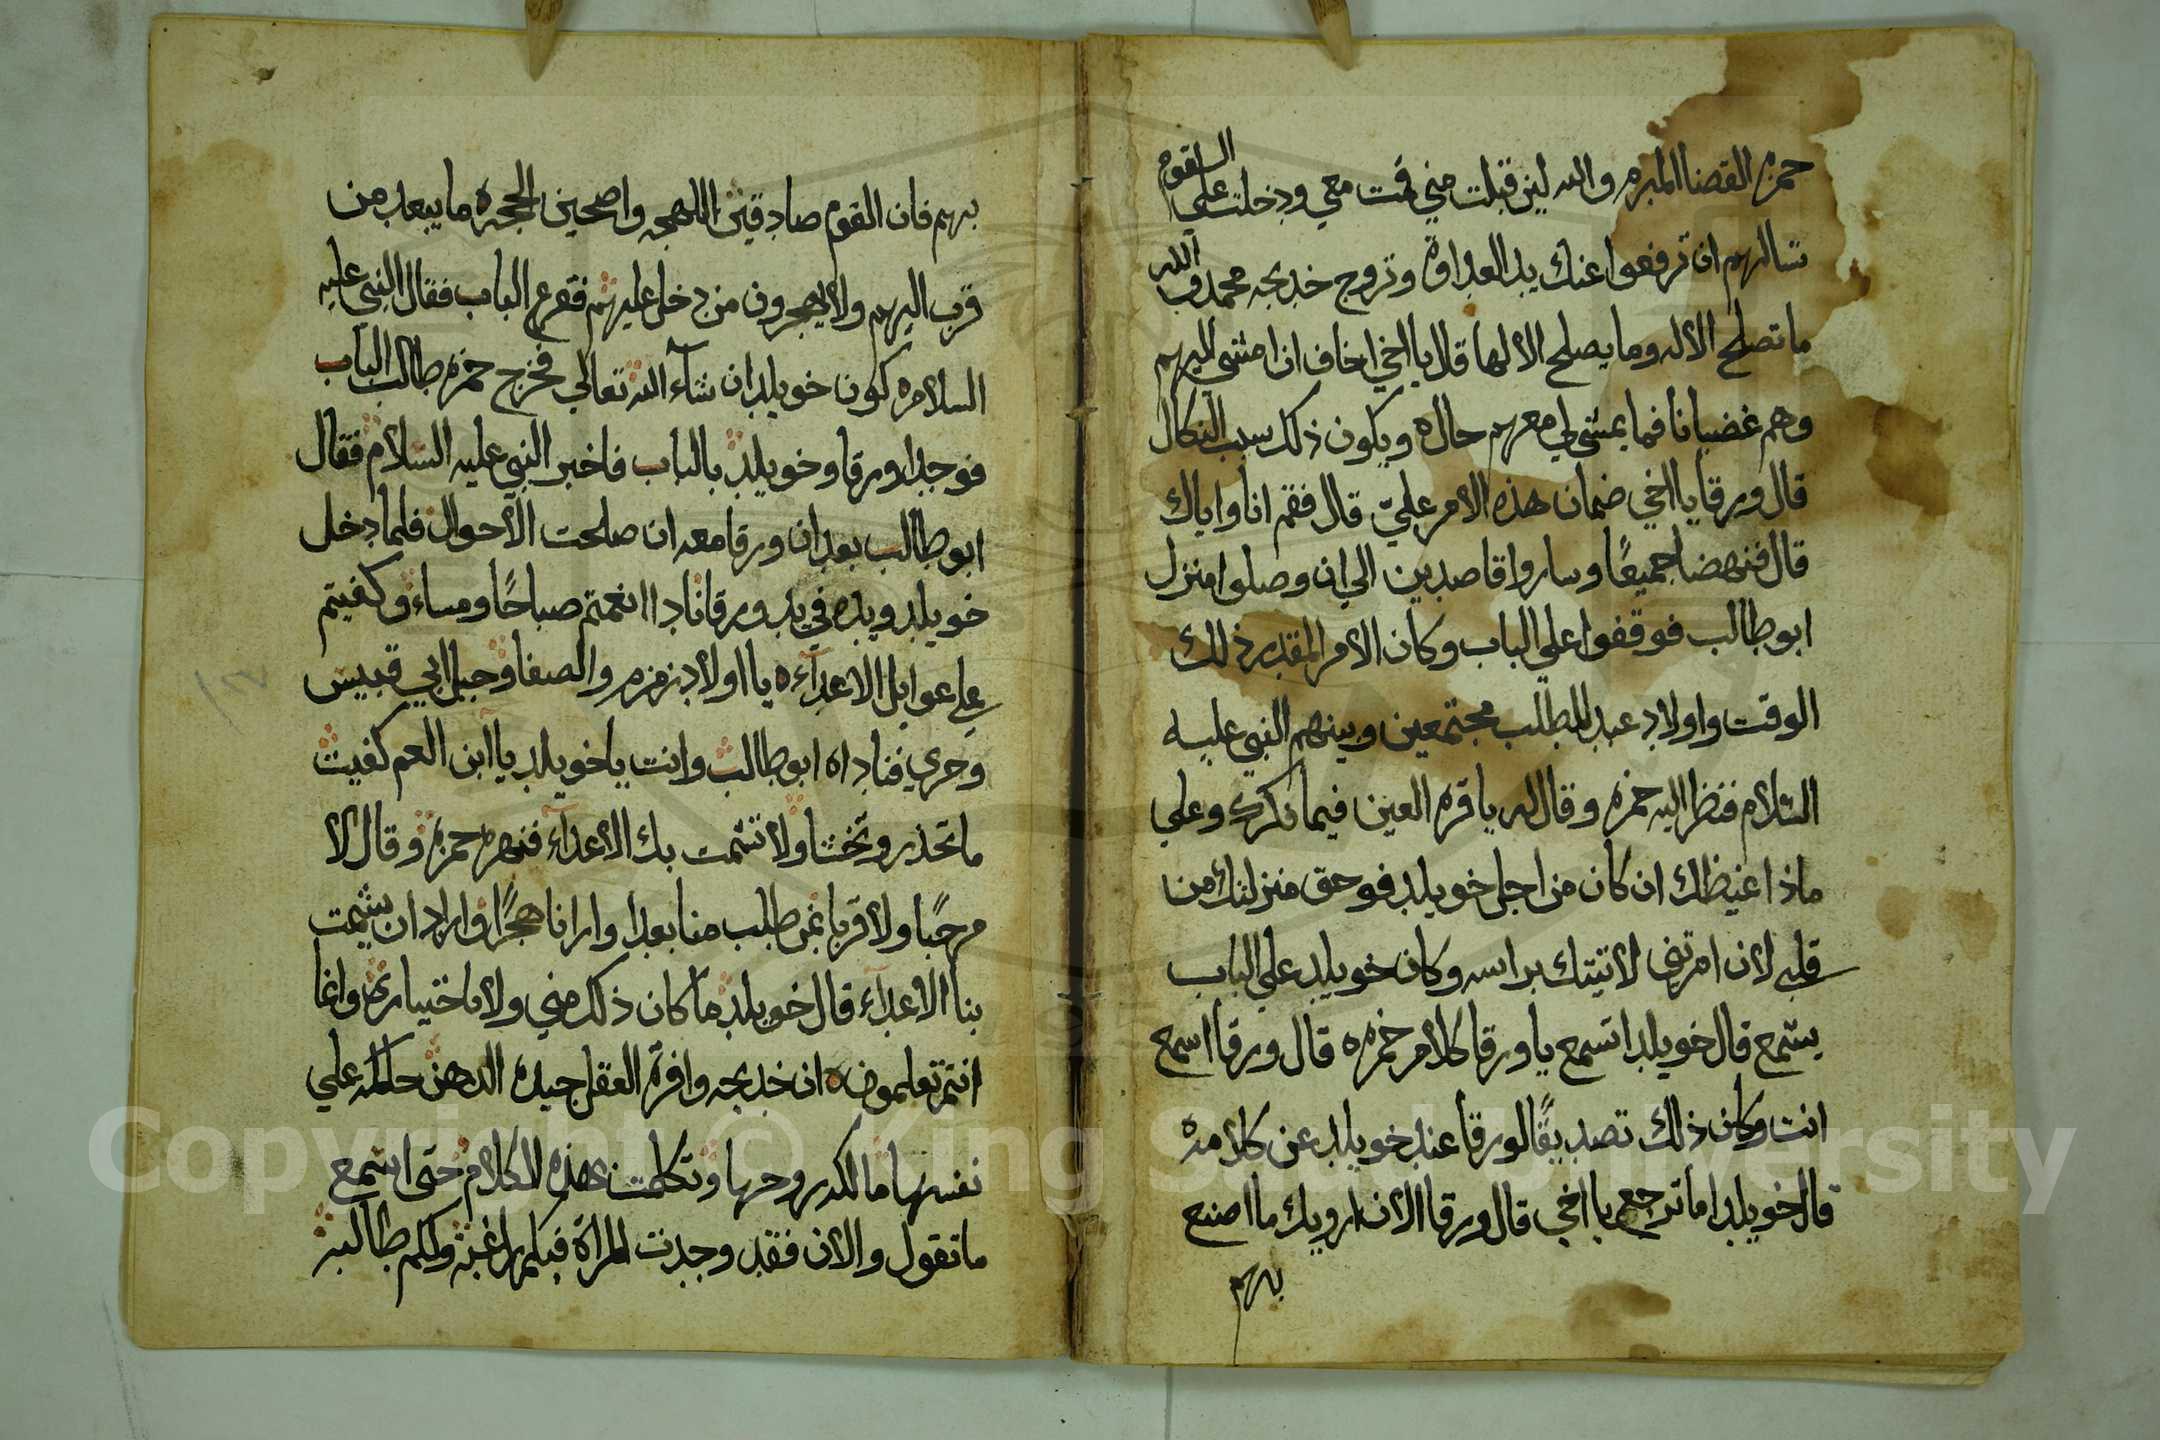 حمزه القضا المبرم والله لين قبلت مني قمت معي ودخلت علي القوم
تسالهم ان ترفعوا عنك يد العداوة وتزوج خديجه محمد فو الله
ما تصلح الا له وما يصلح الا لها قال يا اخي اخاف ان امشي اليهم
وهم غضبانا فما يمشي لي معهم حاله ويكون ذلك سبب النكال
قال ورقا يا اخي ضمان هذه الامر عليّ قال فقم انا واياك
قال فنهضا جميعًا وساروا قاصدين الي ان وصلوا منزل
ابو طالب فوقفوا علي الباب وكان الامر المقدر ذلك
الوقت واولاد عبد المطلب مجتمعين وبينهم النبي عليه
السلام فنظر اليه حمزه وقال له يا قره العين فيما فكرك وعلي
ماذا غيظك ان كان من اجل خويلد فوحق منزلتك من
قلبي لان امرتني لاتيتك براسه وكان خويلد علي الباب
يستمع قال خويلد اتسمع يا ورقا كلام حمزه قال ورقا اسمع
انت وكان ذلك تصديقًا لورقا عند خويلد عن كلامه
قال خويلد اما ترجع يا اخي قال ورقا الان اوريك ما اصنع
بهم
بهم فان القوم صادقين اللهجه واضحين الحجه ما يبعد من
قرب اليهم ولا يهجرون من دخل عليهم فقرع الباب فقال النبي عليه
السلام يكون خويلد ان شاء الله تعالي فخرج حمزه طالب الباب
فوجد ورقا وخويلد بالباب فاخبر النبي عليه السلام فقال
ابو طالب بعد ان ورقا معه ان صلحت الاحوال فلما دخل
خويلد ويده في يد ورقا نادا انعمتم صباحًا ومساء وكفيتم
علي عوايل الاعداء يا اولاد زمزم والصفا وجبل ابي قبيس
وحري فناداه ابو طالب وانت يا خويلد يا ابن العم كفيت
ما تحذر وتخشا ولا تشمت بك الاعداء فنهره حمزه وقال لا
مرحبًا ولا قربا فمن طلب منا بعدا وارانا هجرًا واراد ان يشمت
بنا الاعداء قال خويلد ما كان ذلك مني ولا باختياري وانما
انتم تعلمون ان خديجه وافرة العقل جيدة الدهن حاكمه علي
نفسها مالكه روحها وتكلمت بهذه الكلام حتي اسمع
ما تقول والان فقد وجدت المراة فيكم راغبة ولكم طالبه